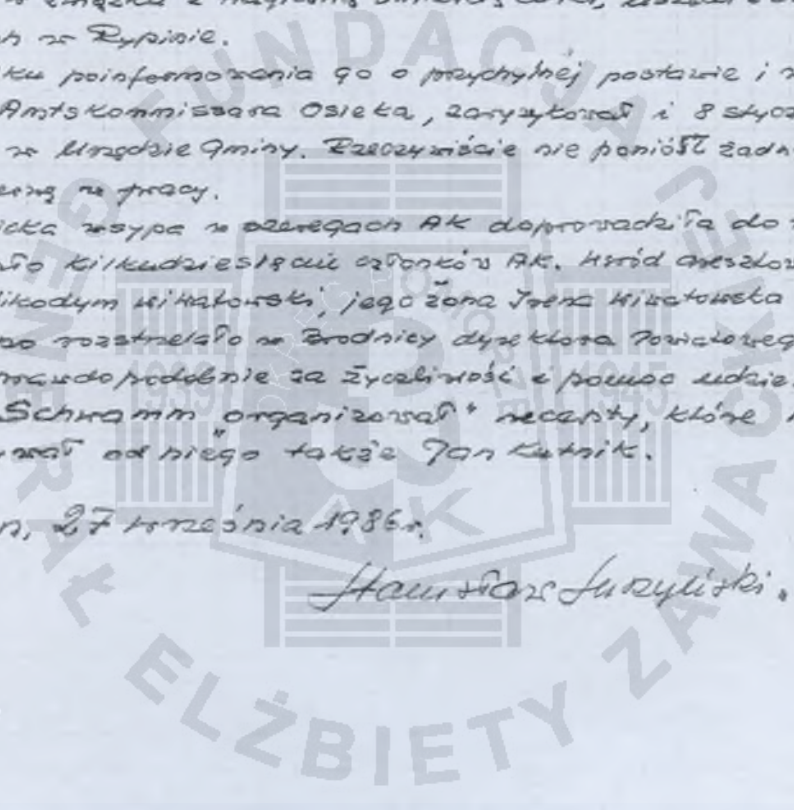 w związku z nagłą
h w Rypinie.
ku poinformowania go o przychylnej postawie i
Amtskommissara Osieka, zaryzykował i 8 stycz
w Urzędzie Gminy. Rzeczywiście nie poniósł żadn
w pracy.
icka wsypa w szeregach AK doprowadziła do
ło kilkudziesięciu członków AK. Wśród areszto
ikodym Kwiatowski, jego żona Irena
rozstrzelało w Brodnicy dyrektora Powiatoweg
prawdopodobnie za życzliwość i pomoc udzie
Schramm „organizował" recepty, które
ywał od niego także Jan Kutnik.
n, 27 września 1986 r.
Stanisław
FUNDACJA GENERAŁ ELŻBIETY ZAWACKIEJ
1939 1945
POMORZE
AK